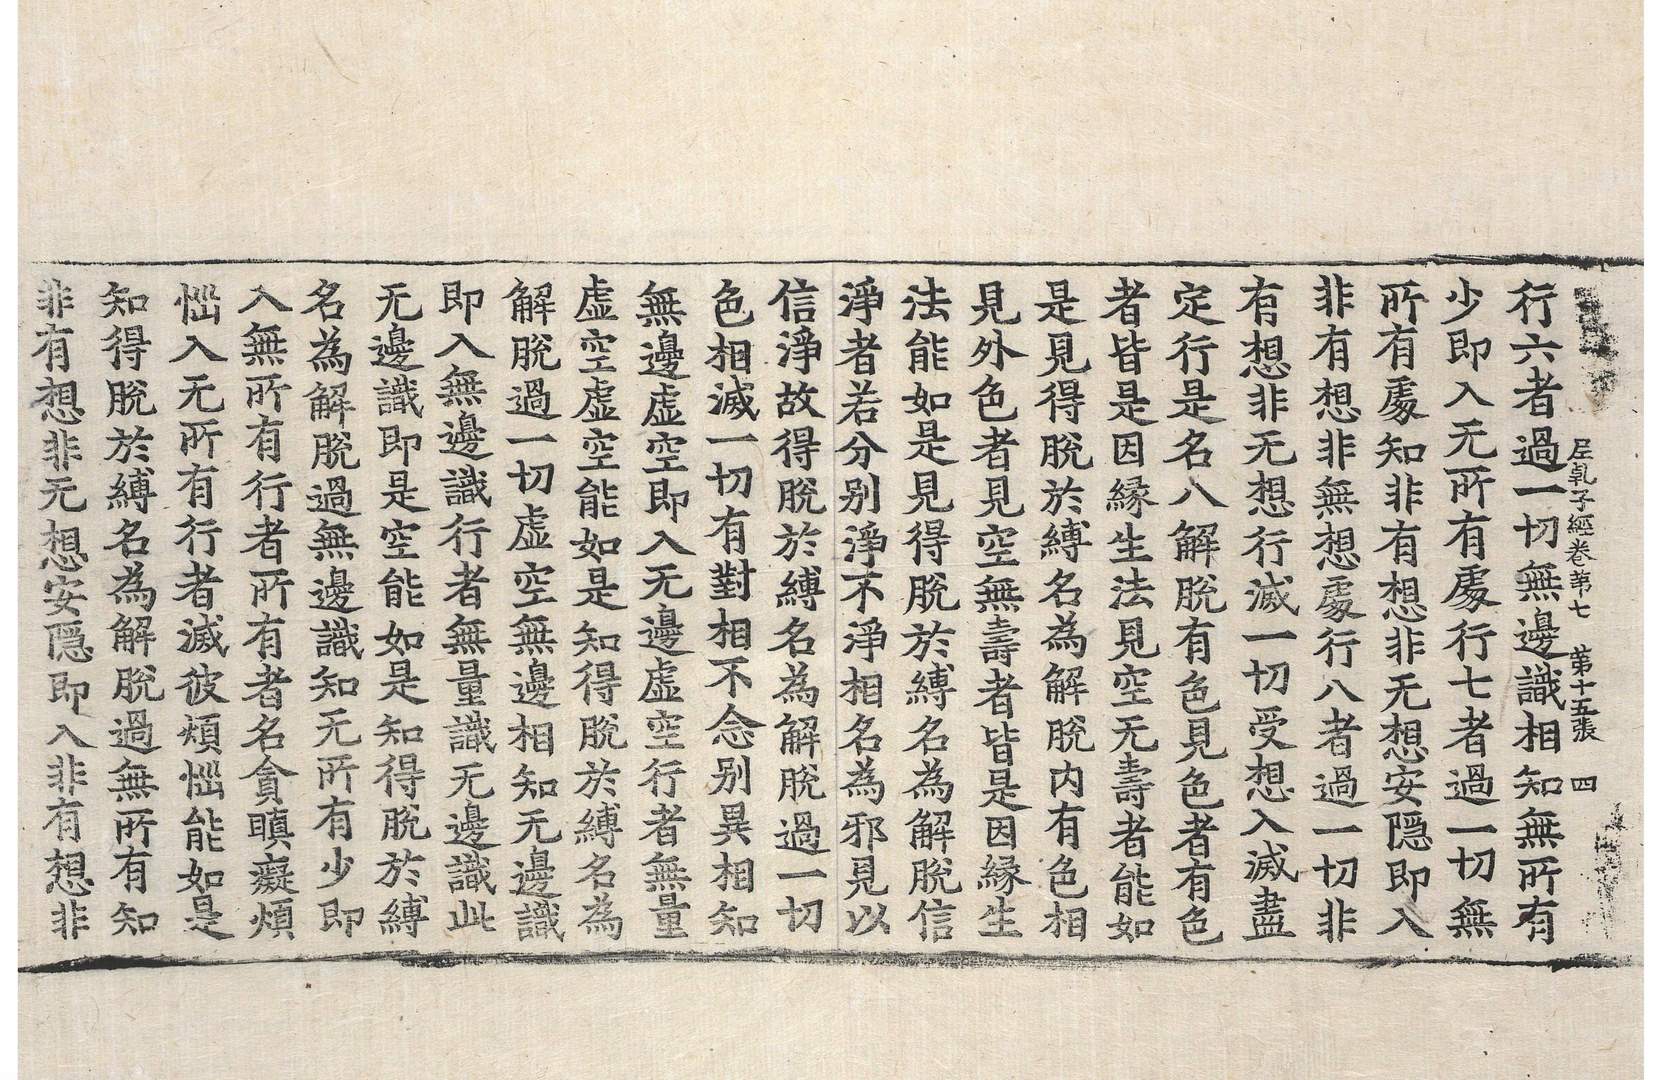 尼乹子經卷第七　第十五張　四
行六者過一切無邊識相知無所有
少即入无所有處行七者過一切無
所有處知非有想非无想安隱即入
非有想非無想處行八者過一切非
有想非无想行滅一切受想入滅盡
定行是名八解脫有色見色者有色
者皆是因緣生法見空无壽者能如
是見得脫於縛名為解脫内有色相
見外色者見空無壽者皆是因緣生
法能如是見得脫於縛名為解脫信
淨者若分别淨不淨相名為邪見以
信淨故得脫於縛名為解脫過一切
色相滅一切有對相不念别異相知
無邊虛空即入无邊虛空行者無量
虛空虛空能如是知得脫於縛名為
解脫過一切虛空無邊相知无邊識
即入無邊識行者無量識无邊識此
无邊識即是空能如是知得脫於縛
名為解脫過無邊識知无所有少即
入無所有行者所有者名貪瞋癡煩
惱入无所有行者滅彼煩惱能如是
知得脫於縛名為解脫過無所有知
非有想非无想安隱即入非有想非